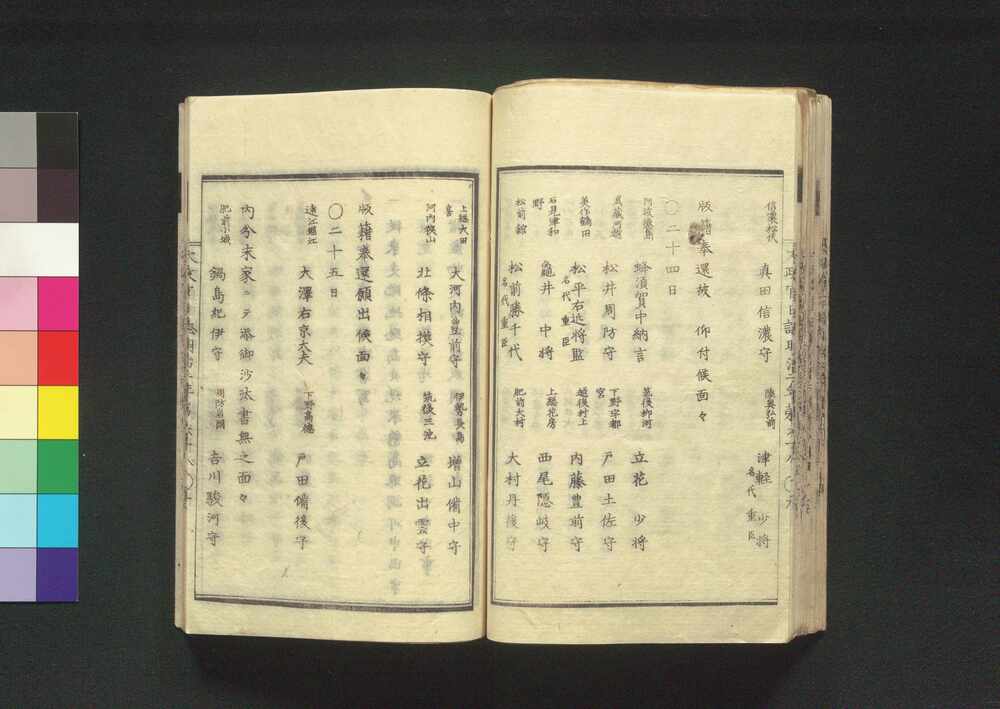 信濃松代　真田信濃守　陸奥弘前　津軽　少将
名代　重臣
版籍奉還故　仰付候面々
〇二十四日
阿波徳島　蜂須賀中納言　筑後柳河　立花　少将
武蔵川越　松井周防守　下野宇都宮　戸田土佐守
美作鶴田　松平右近将監　越後村上　内藤豊前守
名代　重臣
石見津和野　龜井　中将　上総花房　西尾隠岐守
松前館　松前勝千代　肥前大村　大村丹後守
名代　重臣
上総大田喜　大河内豊前守　伊勢長島　増山備中守
河内狭山　北條相摸守　筑後三池　立花出雲守
版籍奉還願出候面々
〇二十五日
遠江堀江　大澤右京大夫　下野高徳　戸田備後守
内分末家ニテ添御沙汰書無之面々
肥前小城　鍋島紀伊守　周防岩國　吉川駿河守